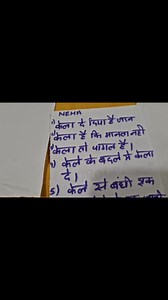 NEHA
1) केला दे दिया है जान
2) केला है कि मानता नही
3) केला तो पागल है।
4) केले के बदले मे केला
दे।
5) केले से बंधी इक